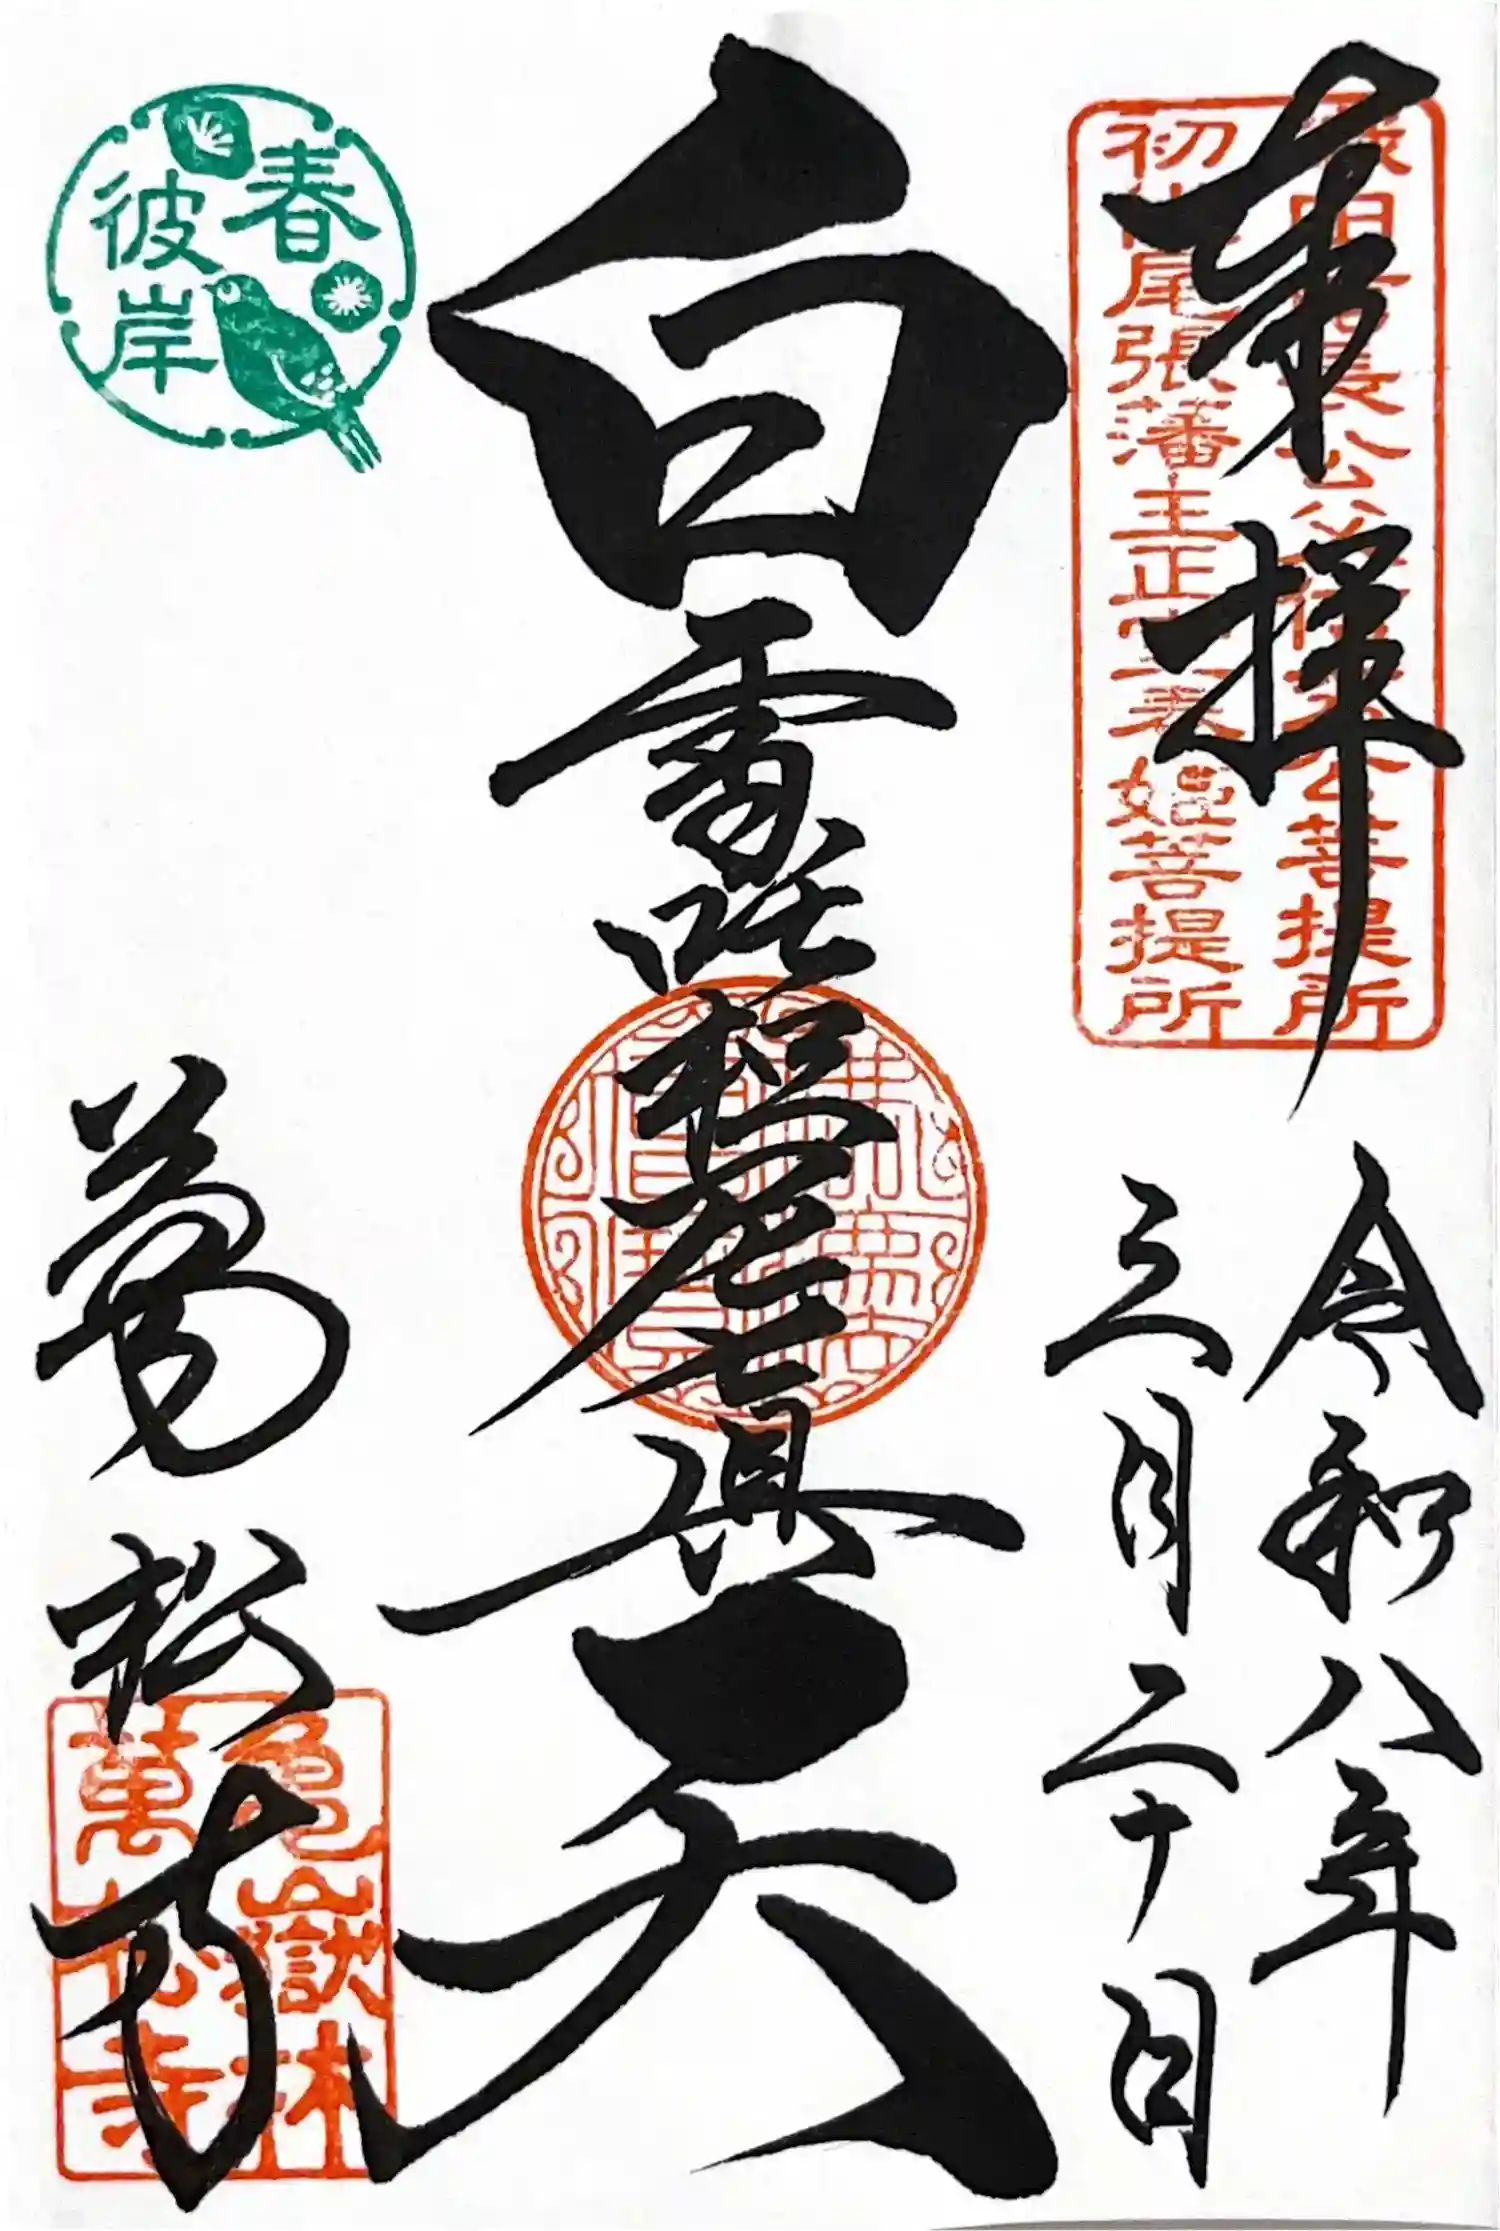 奉拝
織田信長公父信秀公菩提所
初代尾張藩主正室春姫菩提所
令和八年
三月二十日
白雪吒枳尼真天
春
彼岸
萬松寺
亀嶽林
萬松寺